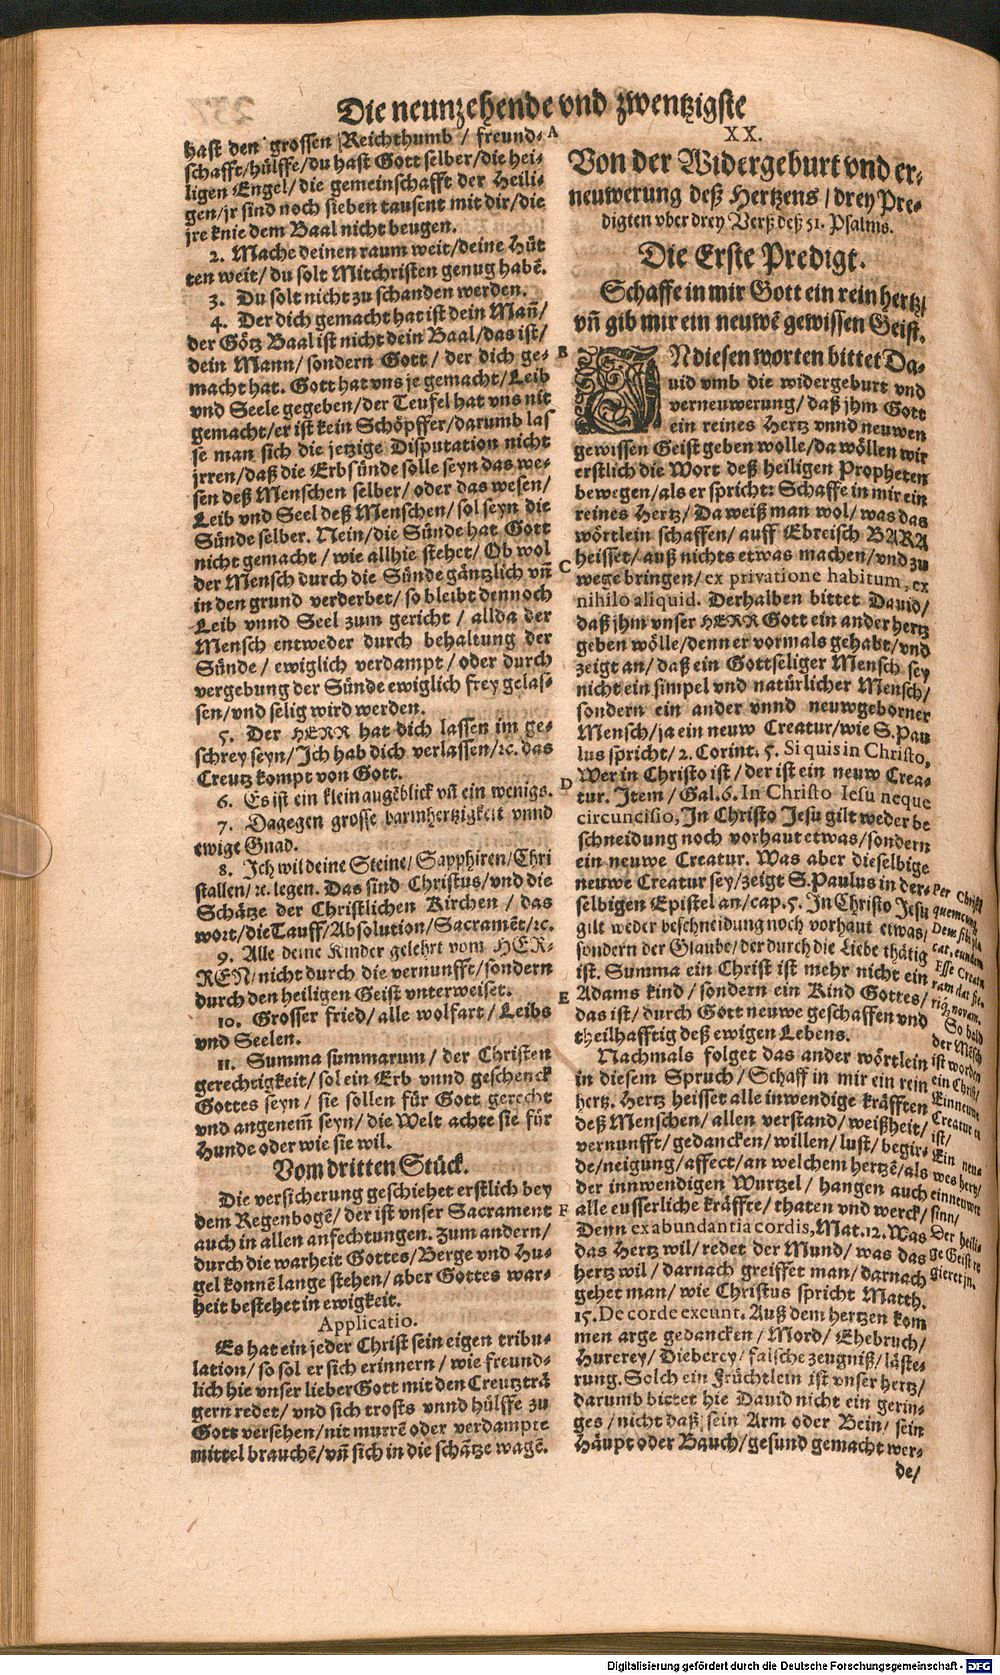 Die neunzehende vnd zwentzigste
hast den grossen Reichthumb / freund-
schafft/hülffe/du hast Gott selber/die hei-
ligen Engel/die gemeinschafft der Heili-
gen/jr sind noch sieben tausent mit dir/die
jre knie dem Baal nicht beugen.
2. Mache deinen raum weit/deine Hüt
ten weit/du solt Mitchristen genug habẽ.
3. Du solt nicht zu schanden werden.
4. Der dich gemacht hat ist dein Mañ/
der Götz Baal ist nicht dein Baal/das ist/
dein Mann/sondern Gott/ der dich ge-
macht hat. Gott hat vns je gemacht/Leib
vnd Seele gegeben/der Teufel hat vns nit
gemacht/er ist kein Schöpffer/darumb las
se man sich die jetzige Disputation nicht
jrren/daß die Erbsünde solle seyn das we-
sen deß Menschen selber/ oder das wesen/
Leib vnd Seel deß Menschen/sol seyn die
Sünde selber. Nein/die Sünde hat Gott
nicht gemacht / wie allhie stehet/ Ob wol
der Mensch durch die Sünde gäntzlich vñ
in den grund verderbet/so bleibt dennoch
Leib vnnd Seel zum gericht / allda der
Mensch entweder durch behaltung der
Sünde / ewiglich verdampt / oder durch
vergebung der Sünde ewiglich frey gelas-
sen/vnd selig wird werden.
5. Der HERR hat dich lassen im ge-
schrey seyn/Ich hab dich verlassen/ꝛc. das
Creutz kompt von Gott.
6. Es ist ein klein augẽblick vñ ein wenigs.
7. Dagegen grosse barmhertzigkeit vnnd
ewige Gnad.
8. Ich wil deine Steine/Sapphiren/Chri
stallen/ꝛc. legen. Das sind Christus/vnd die
Schätze der Christlichen Kirchen / das
wort/die Tauff/Absolution/Sacramẽt/ꝛc.
9. Alle deine Kinder gelehrt vom HER-
REN/nicht durch die vernunfft/sondern
durch den heiligen Geist vnterweiset.
10. Grosser fried/alle wolfart/Leibs
vnd Seelen.
11. Summa summarum/ der Christen
gerechtigkeit/sol ein Erb vnnd geschenck
Gottes seyn/ sie sollen für Gott gerecht
vnd angenem̃ seyn/die Welt achte sie für
Hunde oder wie sie wil.
Vom dritten Stück.
Die versicherung geschiehet erstlich bey
dem Regenbogẽ/der ist vnser Sacrament
auch in allen anfechtungen. Zum andern/
durch die warheit Gottes/Berge vnd Hu-
gel konnẽ lange stehen/aber Gottes war-
heit bestehet in ewigkeit.
Applicatio.
Es hat ein jeder Christ sein eigen tribu-
lation/so sol er sich erinnern/wie freund-
lich hie vnser lieber Gott mit den Creutzträ
gern redet/ vnd sich trosts vnnd hülffe zu
Gott versehen/nit murrẽ oder verdampte
mittel brauchẽ/vñ sich in die schätze wagẽ.
A
B
C
D
E
F
XX.
Von der Widergeburt vnd er-
neuwerung deß Hertzens / drey Pre-
digten vber drey Verß deß 51. Psalms.
Die Erste Predigt.
Schaffe in mir Gott ein rein hertz/
vñ gib mir ein neuwẽ gewissen Geist.
IN diesen worten bittet Da-
uid vmb die widergeburt vnd
verneuwerung/ daß jhm Gott
ein reines Hertz vnnd neuwen
gewissen Geist geben wolle/da wöllen wir
erstlich die Wort deß heiligen Propheten
bewegen/als er spricht: Schaffe in mir ein
reines Hertz/ Da weiß man wol/ was das
wörtlein schaffen/ auff Ebreisch BARA
heisset/ auß nichts etwas machen/vnd zu
wege bringen/ ex privatione habitum, ex
nihilo aliquid. Derhalben bittet Dauid/
daß jhm vnser HERR Gott ein ander hertz
geben wölle/denn er vormals gehabt/vnd
zeigt an/ daß ein Gottseliger Mensch sey
nicht ein simpel vnd natürlicher Mensch/
sondern ein ander vnnd neuwgeborner
Mensch/ja ein neuw Creatur/wie S.Pau
lus spricht/2. Corint. 5. Si quis in Christo,
Wer in Christo ist / der ist ein neuw Crea-
tur. Item/ Gal.6. In Christo Iesu neque
circuncisio, In Christo Jesu gilt weder be
schneidung noch vorhaut etwas/sondern
ein neuwe Creatur. Was aber dieselbige
neuwe Creatur sey/zeigt S.Paulus in der-
selbigen Epistel an/cap.5. In Christo Jesu
gilt weder beschneidung noch vorhaut etwas/
sondern der Glaube/der durch die Liebe thätig
ist. Summa ein Christ ist mehr nicht ein
Adams kind/ sondern ein Kind Gottes/
das ist/durch Gott neuwe geschaffen vnd
theilhafftig deß ewigen Lebens.
Nachmals folget das ander wörtlein
in diesem Spruch/Schaff in mir ein rein
hertz. Hertz heisset alle inwendige kräfften
deß Menschen/ allen verstand/weißheit/
vernunfft/gedancken/willen/lust/begir-
de/neigung/affect/an welchem hertzẽ/als
der innwendigen Wurtzel/ hangen auch
alle eusserliche kräffte/thaten vnd werck/
Denn ex abundantia cordis, Mat.12. Was
das Hertz wil/redet der Mund/was das
hertz wil / darnach greiffet man/darnach
gehet man/ wie Christus spricht Matth.
15. De corde exeunt. Auß dem hertzen kom
men arge gedancken/ Mord/ Ehebruch/
Hurerey/ Dieberey/ falsche zeugniß/läste-
rung. Solch ein Früchtlein ist vnser hertz/
darumb bittet hie Dauid nicht ein gerin-
ges/nicht daß sein Arm oder Bein/ sein
Häupt oder Bauch/gesund gemacht wer-
de/
Per Christũ
quemcunq;
Deus sibi
cat, eundem
Esse Creatu
ram dat
novam.
So bald
der Mẽsch
ist worden
ein Christ/
Ein neuwe
Creatur er
ist/
Ein neu-
wes hertz/
ein neuwer
sinn/
Der heili-
ge Geist re
gieret jn.
Digitalisierung gefördert durch die Deutsche Forschungsgemeinschaft - DFG